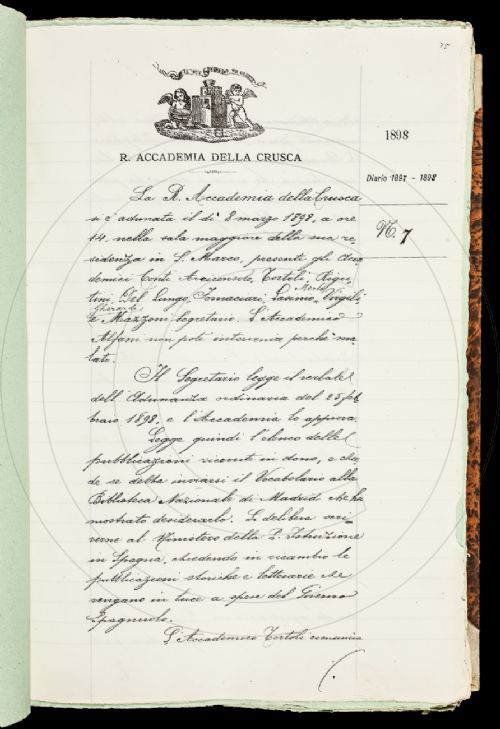 75
R. ACCADEMIA DELLA CRUSCA
1898
Diario 1897 - 1898
N. 7
La R. Accademia della Crusca
si è adunata il dì 8 marzo 1898, a ore
14, nella sala maggiore della sua re-
sidenza in S. Marco, presenti gli Acca-
demici Conti Arciconsolo, Tortoli, Rigu-
tini, Del Lungo, Tommasini, Merkel, Virgili
Gherardi
e Mazzoni Segretario. L'Accademico
Alfani non poté intervenire perchè ma-
lato.
Il Segretario legge il verbale
dell'Adunanza ordinaria del 25 feb-
braio 1898, e l'Accademia lo approva.
Legge quindi l'elenco delle
pubblicazioni ricevute in dono, e chie-
de se debba inviarsi il Vocabolario alla
Biblioteca Nazionale di Madrid che ha
mostrato desiderarlo. Si delibera scri-
verne al Ministero della P. Istruzione
in Spagna, chiedendo in ricambio le
pubblicazioni storiche e letterarie che
vengano in luce a spese del Governo
Spagnuolo.
L'Accademico Tortoli comunica